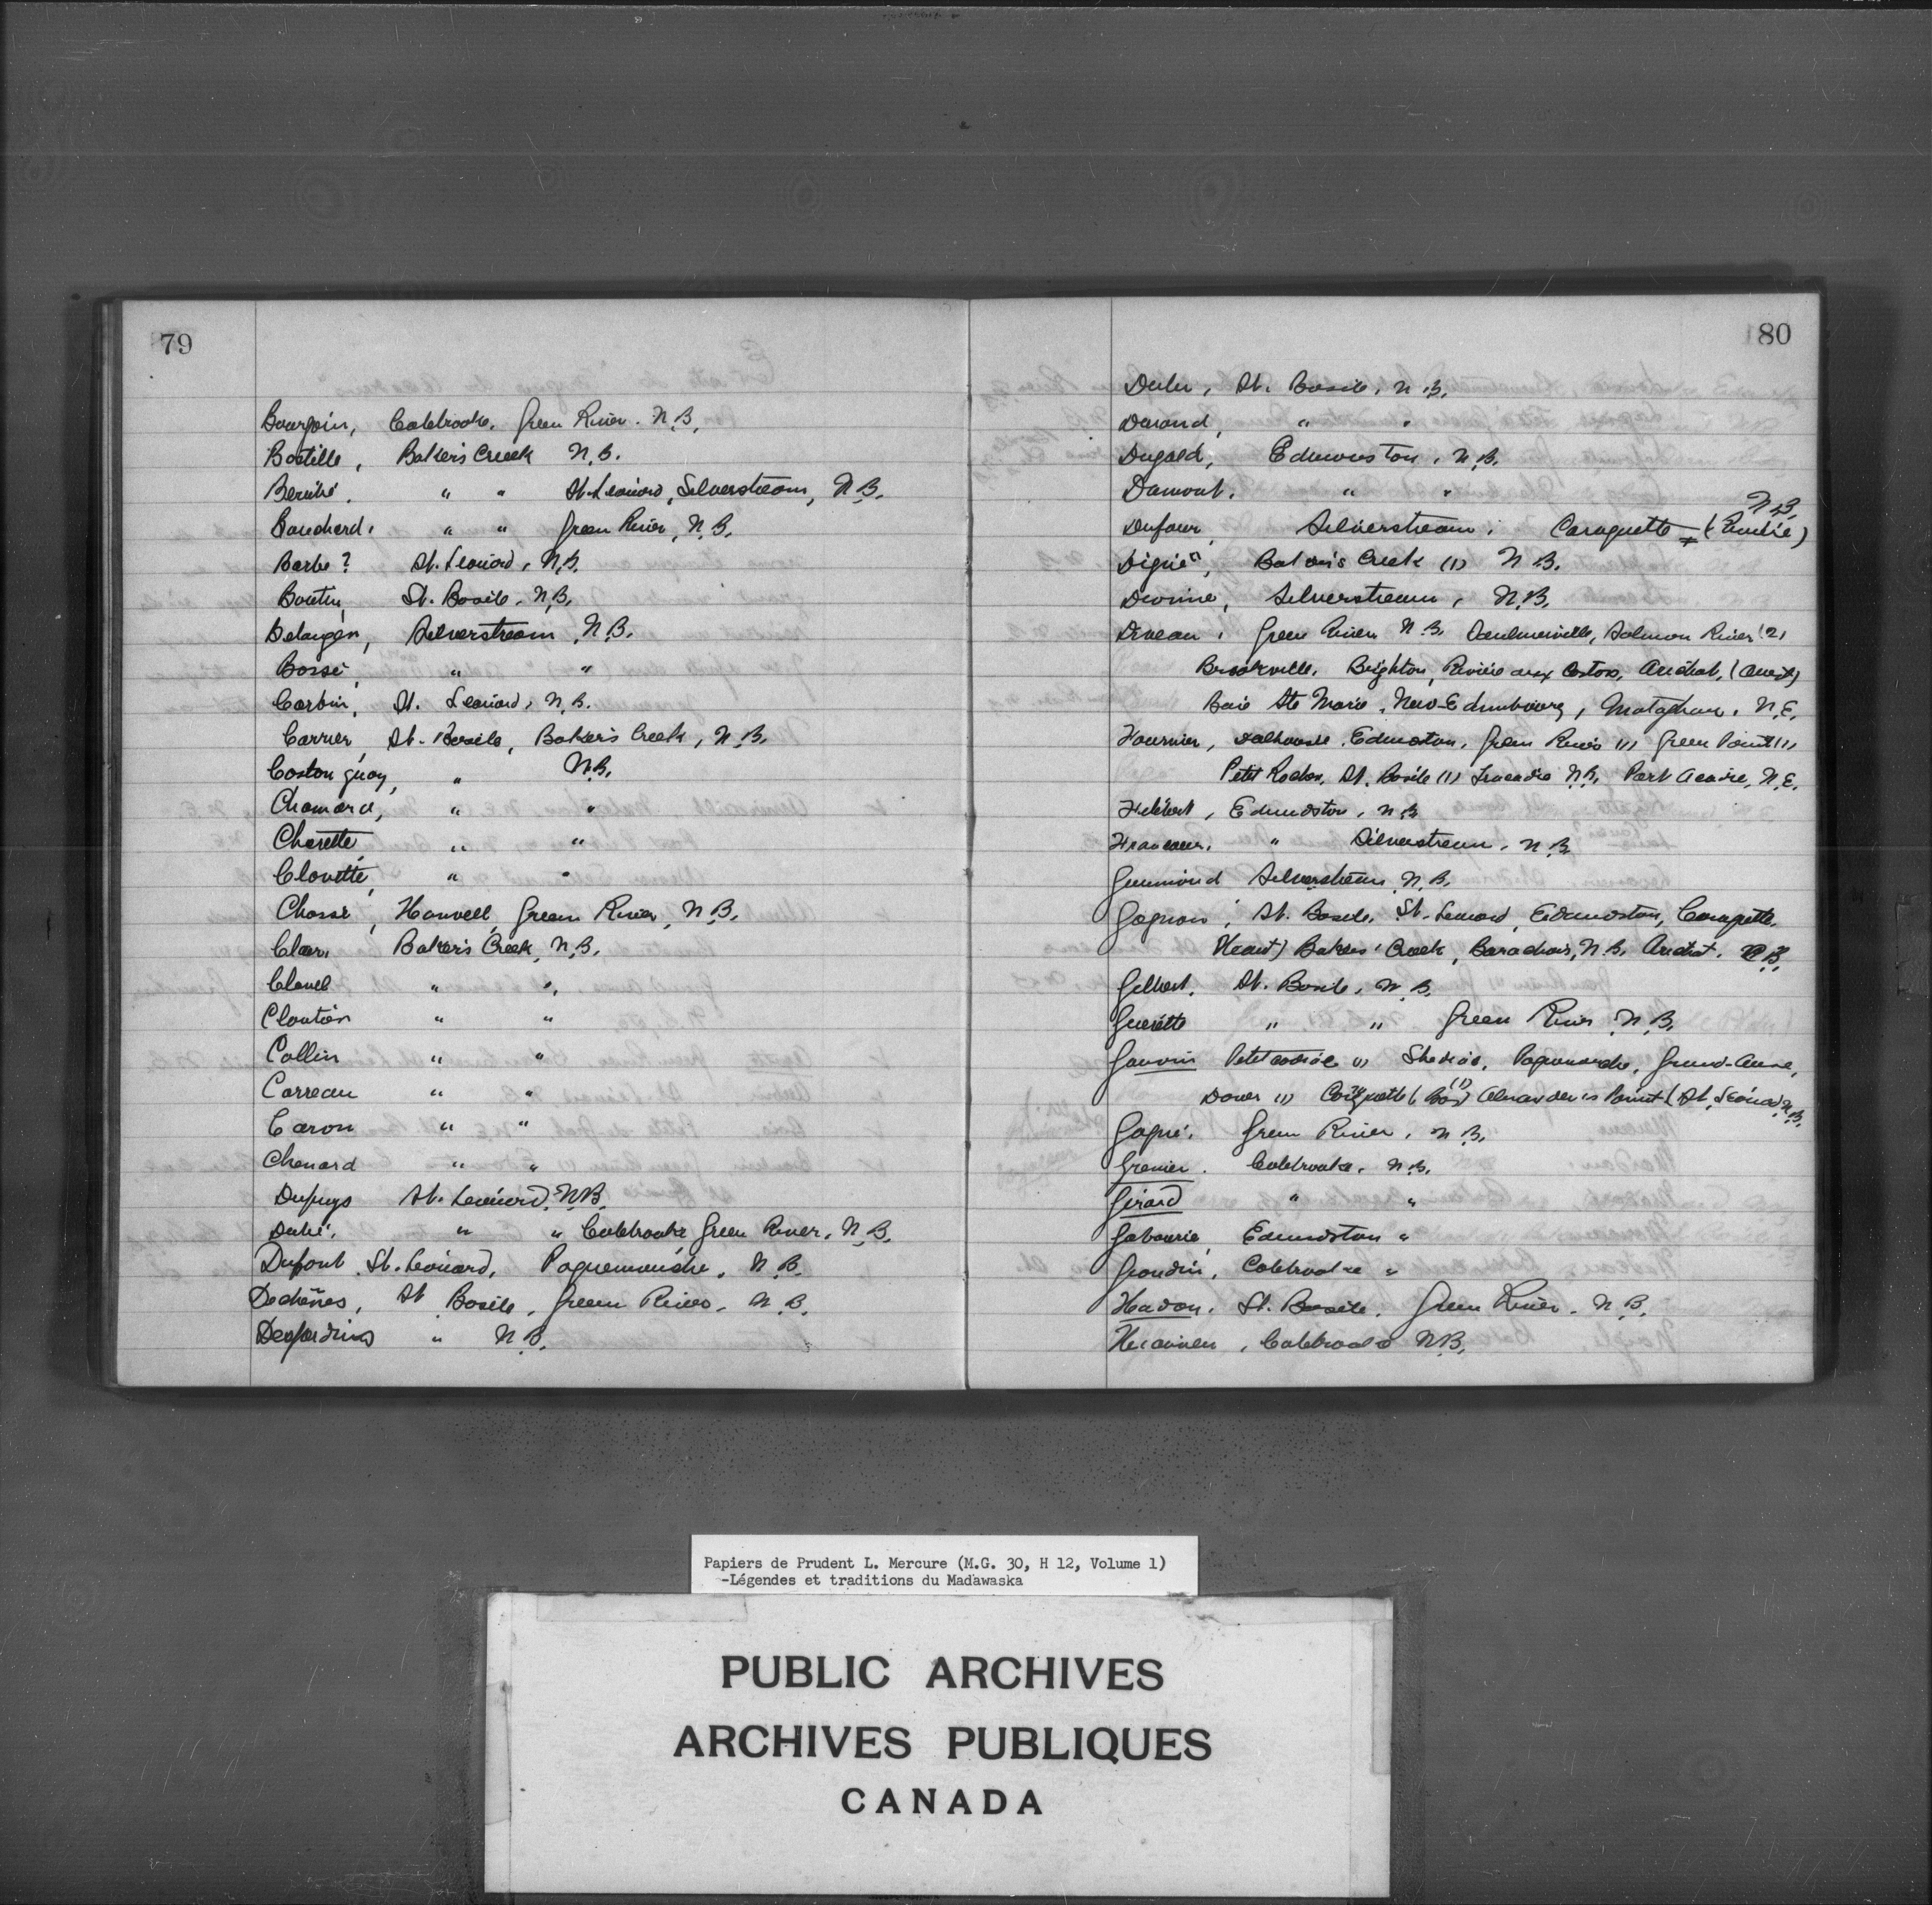 79
Bourgoin, Colebrooke, Green River. N.B.
Bostille, Baker's Creek N.B.
Berubé, " " St. Leonard, Silverstream, N.B.
Bouchard, " " Green River, N.B.
Barbe? St. Leonard, N.B.
Boutin, St. Basile, N.B.
Belanger, Silverstream, N.B.
Bossé, " "
Corbin, St. Leonard, N.B.
Carrier, St. Basile, Baker's Creek, N.B.
Castonguay, " N.B.
Chamard, " "
Charette, " "
Clovette, " "
Chassé, Green River, N.B.
Clair, Baker's Creek, N.B.
Clavel " "
Cloutier " "
Collin " "
Correau " "
Caron " "
Chenard " "
Dupuys St. Leonard, N.B.
Dubé, " " Colebrooke Green River, N.B.
Dupont St. Leonard, Poquemouche, N.B.
Dechênes, St Basile, Green River, N.B.
Desjardins " N.B.
80
St. Basile, N.B.
Durand, " "
Dugald, Edmunston, N.B.
Dumont, " "
N.B.
Dufour, Silverstream, Caraquette
Baker's Creek (1) N.B.
Devine, Silverstream, N.B.
Diveau, Green River N.B. Saulnierville, Salmon River (2)
Brookville, Brighton, Rivière aux Castors, Arichat, (Ouest)
Baie Ste Marie, New-Edimbourg, Meteghan, N.E.
Fournier, Dalhousie, Edmoston, Green River (1) Green Point (1)
Petit Rocher, St. Basile (1) Tracadie N.B. Port Acadie, N.E.
Edmundston, N.B.
Francoeur, " Silverstream, N.B.
Guimond Silverstream, N.B.
Gagnon, St. Basile, St. Leonard, Edmunston, Caraquette
(Haut) Bakers' Creek, Barachois, N.B. Arichat. N.B.
Gilbert, St. Basile, N.B.
Guerette " " Green River N.B.
Gauvin Petitcodiac (1) Shediac, Poquemouche, Grand-Anse,
Dover (1) Caraquette (Bas) (1) Alexander's Point (St. Léonard N.B.
Gagné, Green River, N.B.
Grenier. Colebrooke, N.B.
Girard " "
Gabourie, Edmundston "
Grondin, Colebrooke "
Hudon, St. Basile, Green River, N.B.
Colebrooke N.B.
Papiers de Prudent L. Mercure (M.G. 30, H 12, Volume 1)
-Légendes et traditions du Madawaska
PUBLIC ARCHIVES
ARCHIVES PUBLIQUES
CANADA